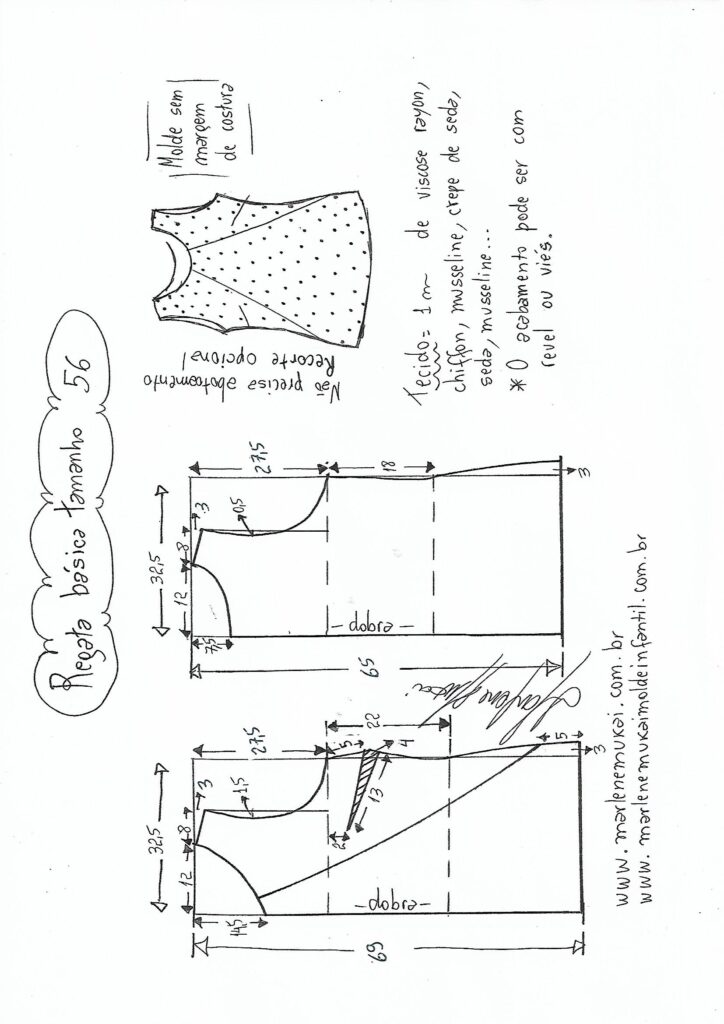 Regata básica tamanho 56
Molde sem
margem
de costura
Não precisa abotoamento
Recorte opcional
Tecido = 1 m de viscose rayon,
chiffon, musseline, crepe de seda,
seda, musseline...
* O acabamento pode ser com
revel ou viés.
32,5
12
8
3
14,5
1,5
27,5
5
4
13
2
22
dobra
5
3
69
32,5
12
8
3
7,5
0,5
27,5
18
dobra
3
65
www.marlenemukai.com.br
www.marlenemukaimoldeinfantil.com.br